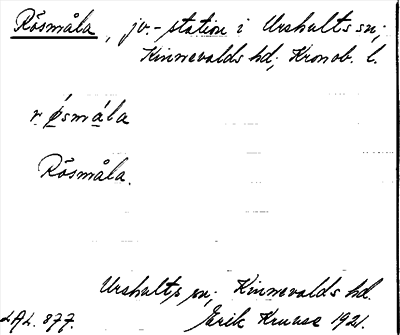 Rösmåla, jv.-station i Urshults sn;
Kinnevalds hd; Kronob. l.
r ǿsmála
Rösmåla.
Urshults sn; Kinnevalds hd.
LAL. 877. Erik Kruuse 1921.